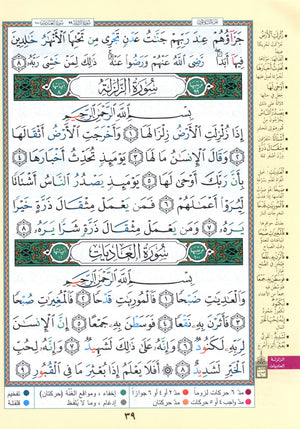 جَزَآؤُهُمْ عِندَ رَبِّهِمْ جَنَّٰتُ عَدْنٍ تَجْرِى مِن تَحْتِهَا ٱلْأَنْهَٰرُ خَٰلِدِينَ
فِيهَآ أَبَدًا ۖ رَّضِىَ ٱللَّهُ عَنْهُمْ وَرَضُوا۟ عَنْهُ ۚ ذَٰلِكَ لِمَنْ خَشِىَ رَبَّهُۥ ٨
سُورَةُ الزَّلْزَلَةِ
بِسْمِ ٱللَّهِ ٱلرَّحْمَٰنِ ٱلرَّحِيمِ
إِذَا زُلْزِلَتِ ٱلْأَرْضُ زِلْزَالَهَا ١ وَأَخْرَجَتِ ٱلْأَرْضُ أَثْقَالَهَا
٢ وَقَالَ ٱلْإِنسَٰنُ مَا لَهَا ٣ يَوْمَئِذٍ تُحَدِّثُ أَخْبَارَهَا ٤
بِأَنَّ رَبَّكَ أَوْحَىٰ لَهَا ٥ يَوْمَئِذٍ يَصْدُرُ ٱلنَّاسُ أَشْتَاتًا
لِّيُرَوْا۟ أَعْمَٰلَهُمْ ٦ فَمَن يَعْمَلْ مِثْقَالَ ذَرَّةٍ خَيْرًا
يَرَهُۥ ٧ وَمَن يَعْمَلْ مِثْقَالَ ذَرَّةٍ شَرًّا يَرَهُۥ ٨
سُورَةُ العَادِيَاتِ
بِسْمِ ٱللَّهِ ٱلرَّحْمَٰنِ ٱلرَّحِيمِ
وَٱلْعَٰدِيَٰتِ ضَبْحًا ١ فَٱلْمُورِيَٰتِ قَدْحًا ٢ فَٱلْمُغِيرَٰتِ صُبْحًا
٣ فَأَثَرْنَ بِهِۦ نَقْعًا ٤ فَوَسَطْنَ بِهِۦ جَمْعًا ٥ إِنَّ ٱلْإِنسَٰنَ
لِرَبِّهِۦ لَكَنُودٌ ٦ وَإِنَّهُۥ عَلَىٰ ذَٰلِكَ لَشَهِيدٌ ٧ وَإِنَّهُۥ لِحُبِّ
ٱلْخَيْرِ لَشَدِيدٌ ٨ أَفَلَا يَعْلَمُ إِذَا بُعْثِرَ مَا فِى ٱلْقُبُورِ ٩
الزلزلة
العاديات
مدّ ٦ حركات لزوماً مدّ ٢ أو ٤ أو ٦ جوازاً إخفاء، ومواقع الغُنَّة (حركتان) تفخيم
مدّ واجب ٤ أو ٥ حركات مدّ حركتان إدغام، وما لا يُلفظ قلقلة
٣٩